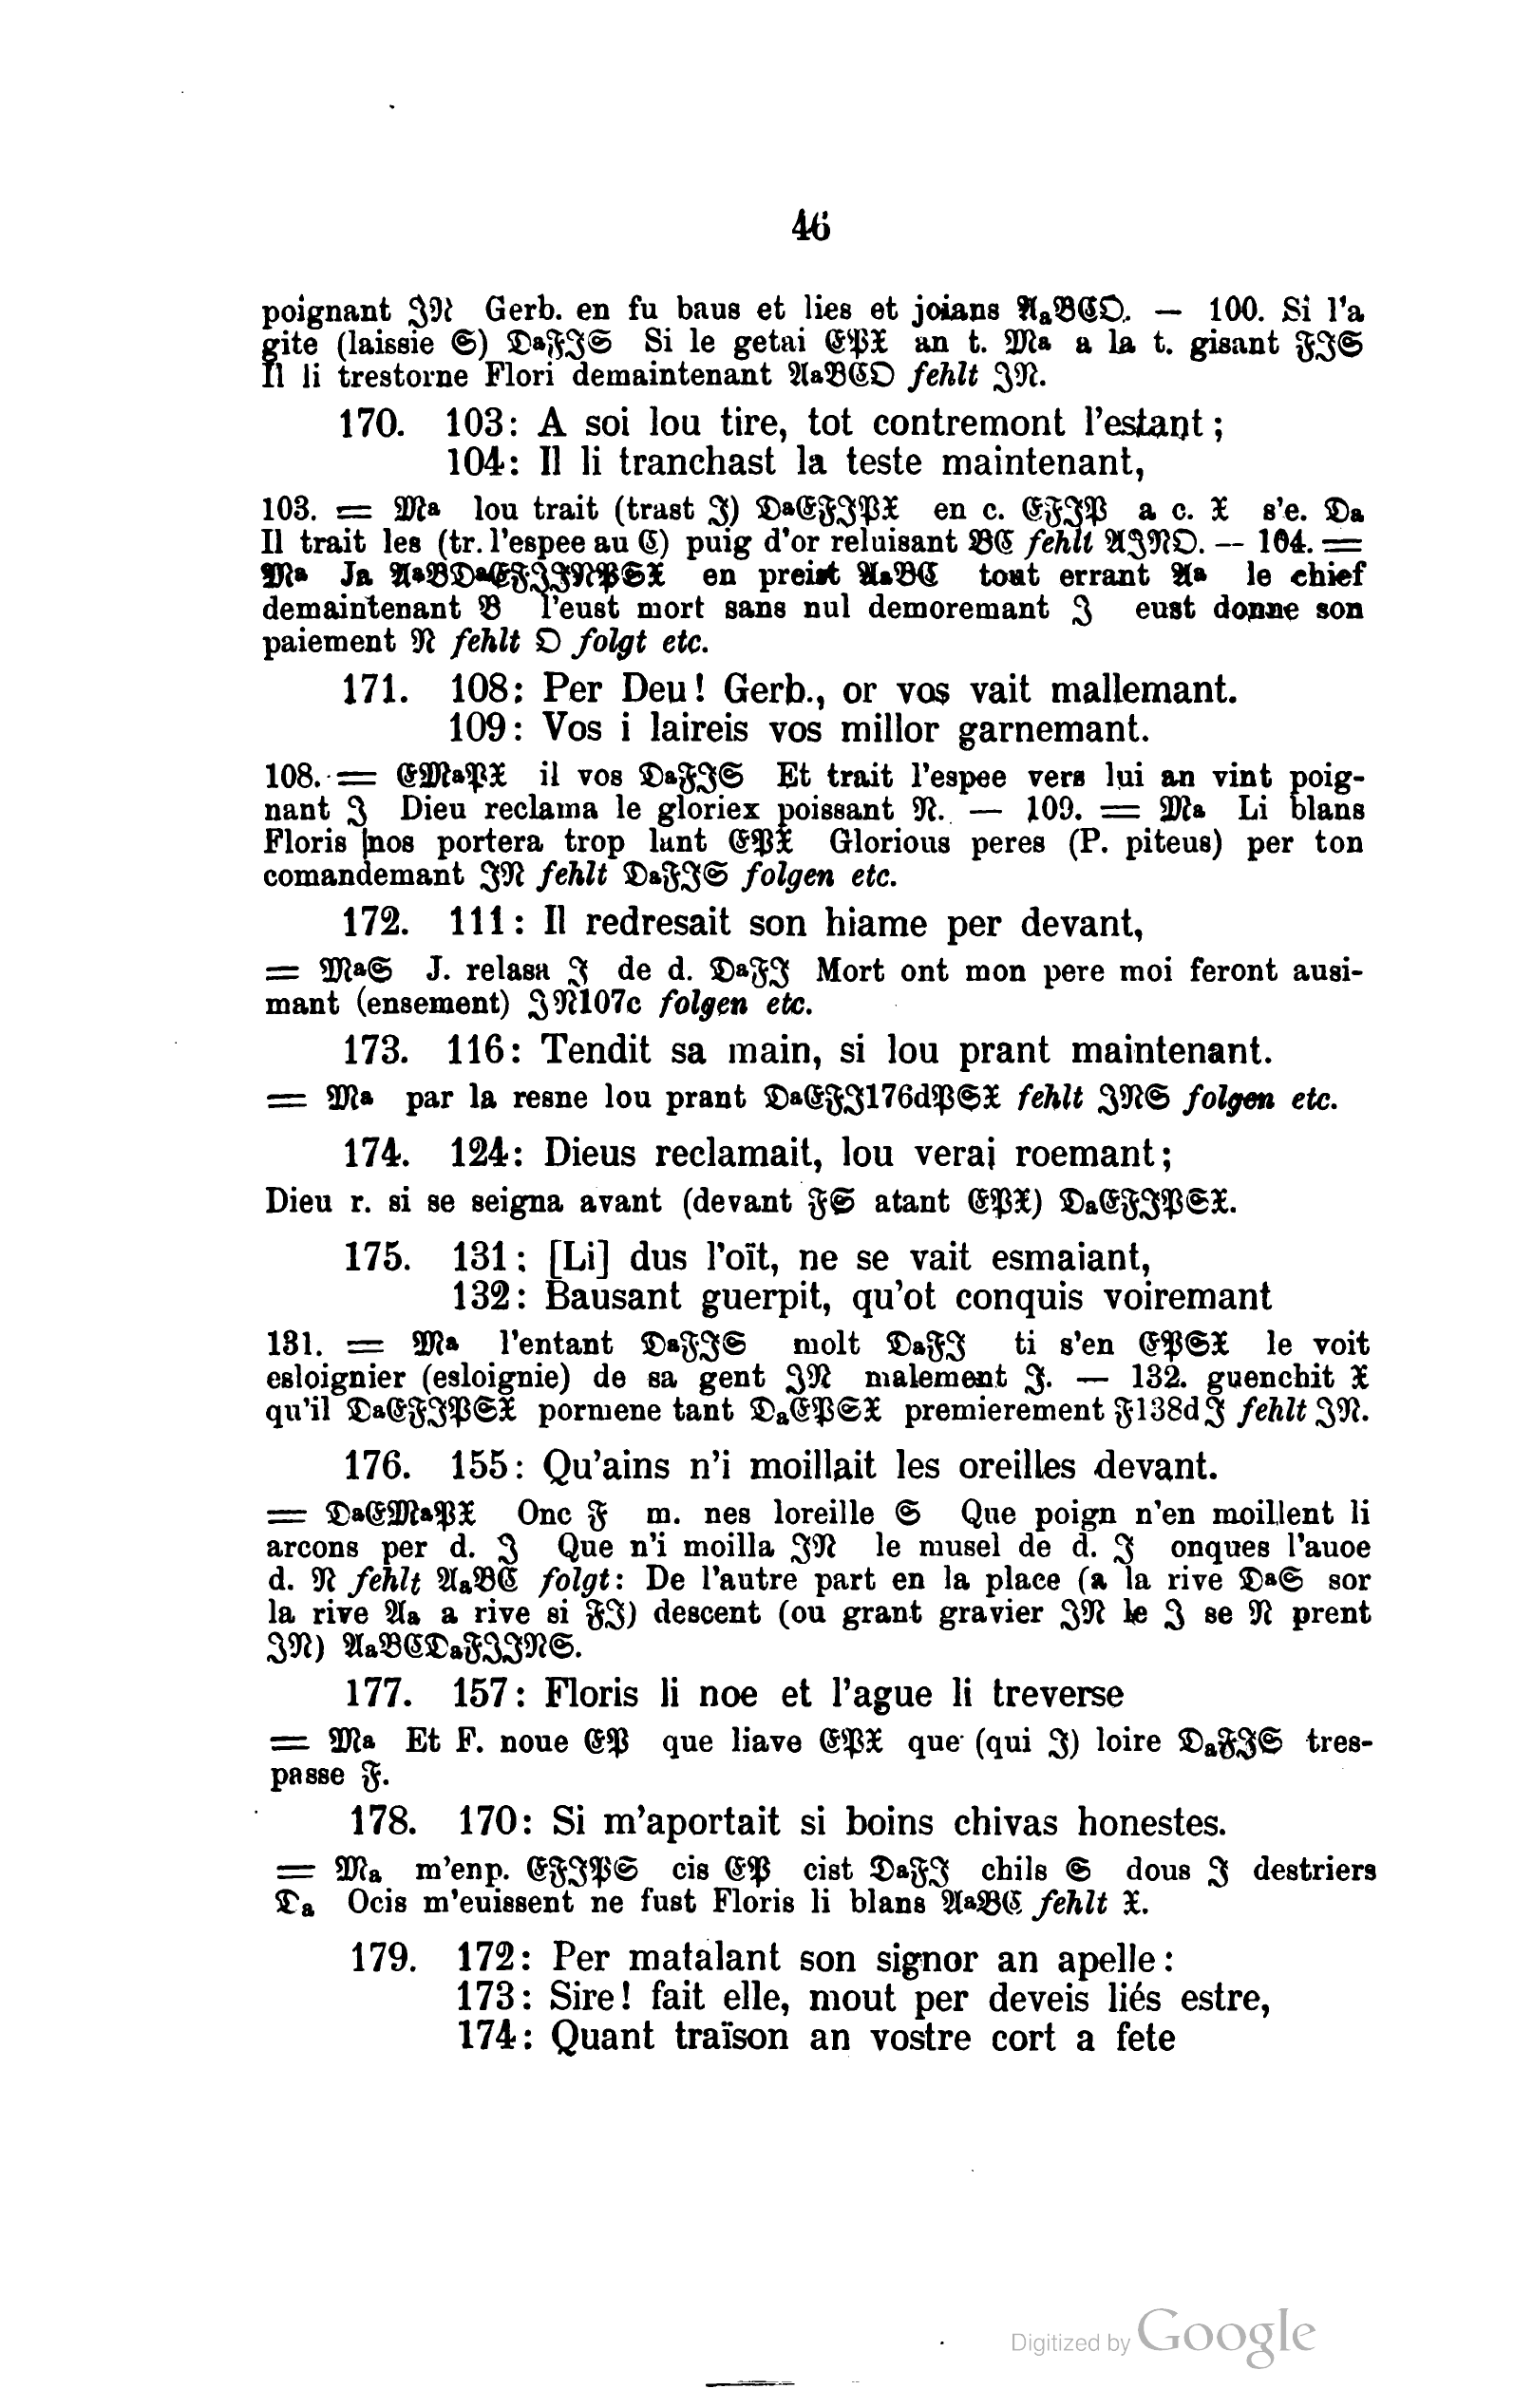 46
poignant ℨ𝔑 Gerb. en fu baus et lies et joians 𝔄a𝔅ℭ𝔇. — 100. Si l'a
gite (laissie 𝔖) 𝔇a𝔉ℑ𝔖 Si le getai 𝔈𝔓𝔛 an t. 𝔐a a la t. gisant 𝔉ℑ𝔖
Il li trestorne Flori demaintenant 𝔄a𝔅ℭ𝔒 fehlt ℨ𝔑.
170. 103: A soi lou tire, tot contremont l'estant;
104: Il li tranchast la teste maintenant,
103. = 𝔐a lou trait (trast ℑ) 𝔇a𝔈𝔉ℑ𝔓𝔛 en c. 𝔈𝔉ℑ𝔓 a c. 𝔛 s'e. 𝔇a
Il trait les (tr. l'espee au ℭ) puig d'or reluisant 𝔅ℭ fehlt 𝔄ℨ𝔑𝔒. — 104. =
𝔐a Ja 𝔄a𝔅𝔇a𝔈𝔉ℨℑ𝔑𝔓𝔖𝔛 en preist 𝔄a𝔅ℭ tout errant 𝔄a le chief
demaintenant 𝔅 l'eust mort sans nul demoremant ℨ eust donne son
paiement 𝔑 fehlt 𝔒 folgt etc.
171. 108: Per Deu! Gerb., or vos vait mallemant.
109: Vos i laireis vos millor garnemant.
108. = 𝔈𝔐a𝔓𝔛 il vos 𝔇a𝔉ℑ𝔖 Et trait l'espee vers lui an vint poig-
nant ℨ Dieu reclama le gloriex poissant 𝔑. — 109. = 𝔐a Li blans
Floris nos portera trop lant 𝔈𝔓𝔛 Glorious peres (P. piteus) per ton
comandemant ℨ𝔑 fehlt 𝔇a𝔉ℑ𝔖 folgen etc.
172. 111: Il redresait son hiame per devant,
= 𝔐a𝔖 J. relasa ℑ de d. 𝔇a𝔉ℑ Mort ont mon pere moi feront ausi-
mant (ensement) ℨ𝔑107c folgen etc.
173. 116: Tendit sa main, si lou prant maintenant.
= 𝔐a par la resne lou prant 𝔇a𝔈𝔉ℑ176d𝔓𝔖𝔛 fehlt ℨ𝔑𝔖 folgen etc.
174. 124: Dieus reclamait, lou verai roemant;
Dieu r. si se seigna avant (devant 𝔉𝔖 atant 𝔈𝔓𝔛) 𝔇a𝔈𝔉ℑ𝔓𝔖𝔛.
175. 131: [Li] dus l'oït, ne se vait esmaiant,
132: Bausant guerpit, qu'ot conquis voiremant
131. = 𝔐a l'entant 𝔇a𝔉ℑ𝔖 molt 𝔇a𝔉ℑ ti s'en 𝔈𝔓𝔖𝔛 le voit
esloignier (esloignie) de sa gent ℨ𝔑 malement ℑ. — 132. guenchit 𝔛
qu'il 𝔇a𝔈𝔉ℑ𝔓𝔖𝔛 pormene tant 𝔇a𝔈𝔓𝔖𝔛 premierement 𝔉138dℑ fehlt ℨ𝔑.
176. 155: Qu'ains n'i moillait les oreilles devant.
= 𝔇a𝔈𝔐a𝔓𝔛 Onc 𝔉 m. nes loreille 𝔖 Que poign n'en moillent li
arcons per d. ℨ Que n'i moilla ℨ𝔑 le musel de d. ℑ onques l'auoe
d. 𝔑 fehlt 𝔄a𝔅ℭ folgt: De l'autre part en la place (a la rive 𝔇a𝔖 sor
la rive 𝔄a a rive si 𝔉ℑ) descent (ou grant gravier ℨ𝔑 le ℨ se 𝔑 prent
ℨ𝔑) 𝔄a𝔅ℭ𝔇a𝔉ℨℑ𝔑𝔖.
177. 157: Floris li noe et l'ague li treverse
= 𝔐a Et F. noue 𝔈𝔓 que liave 𝔈𝔓𝔛 que (qui ℑ) loire 𝔇a𝔉ℑ𝔖 tres-
passe 𝔉.
178. 170: Si m'aportait si boins chivas honestes.
= 𝔐a m'enp. 𝔈𝔉ℑ𝔓𝔖 cis 𝔈𝔓 cist 𝔇a𝔉ℑ chils 𝔖 dous ℨ destriers
𝔇a Ocis m'euissent ne fust Floris li blans 𝔄a𝔅ℭ fehlt 𝔛.
179. 172: Per matalant son signor an apelle:
173: Sire! fait elle, mout per deveis liés estre,
174: Quant traïson an vostre cort a fete
Digitized by Google